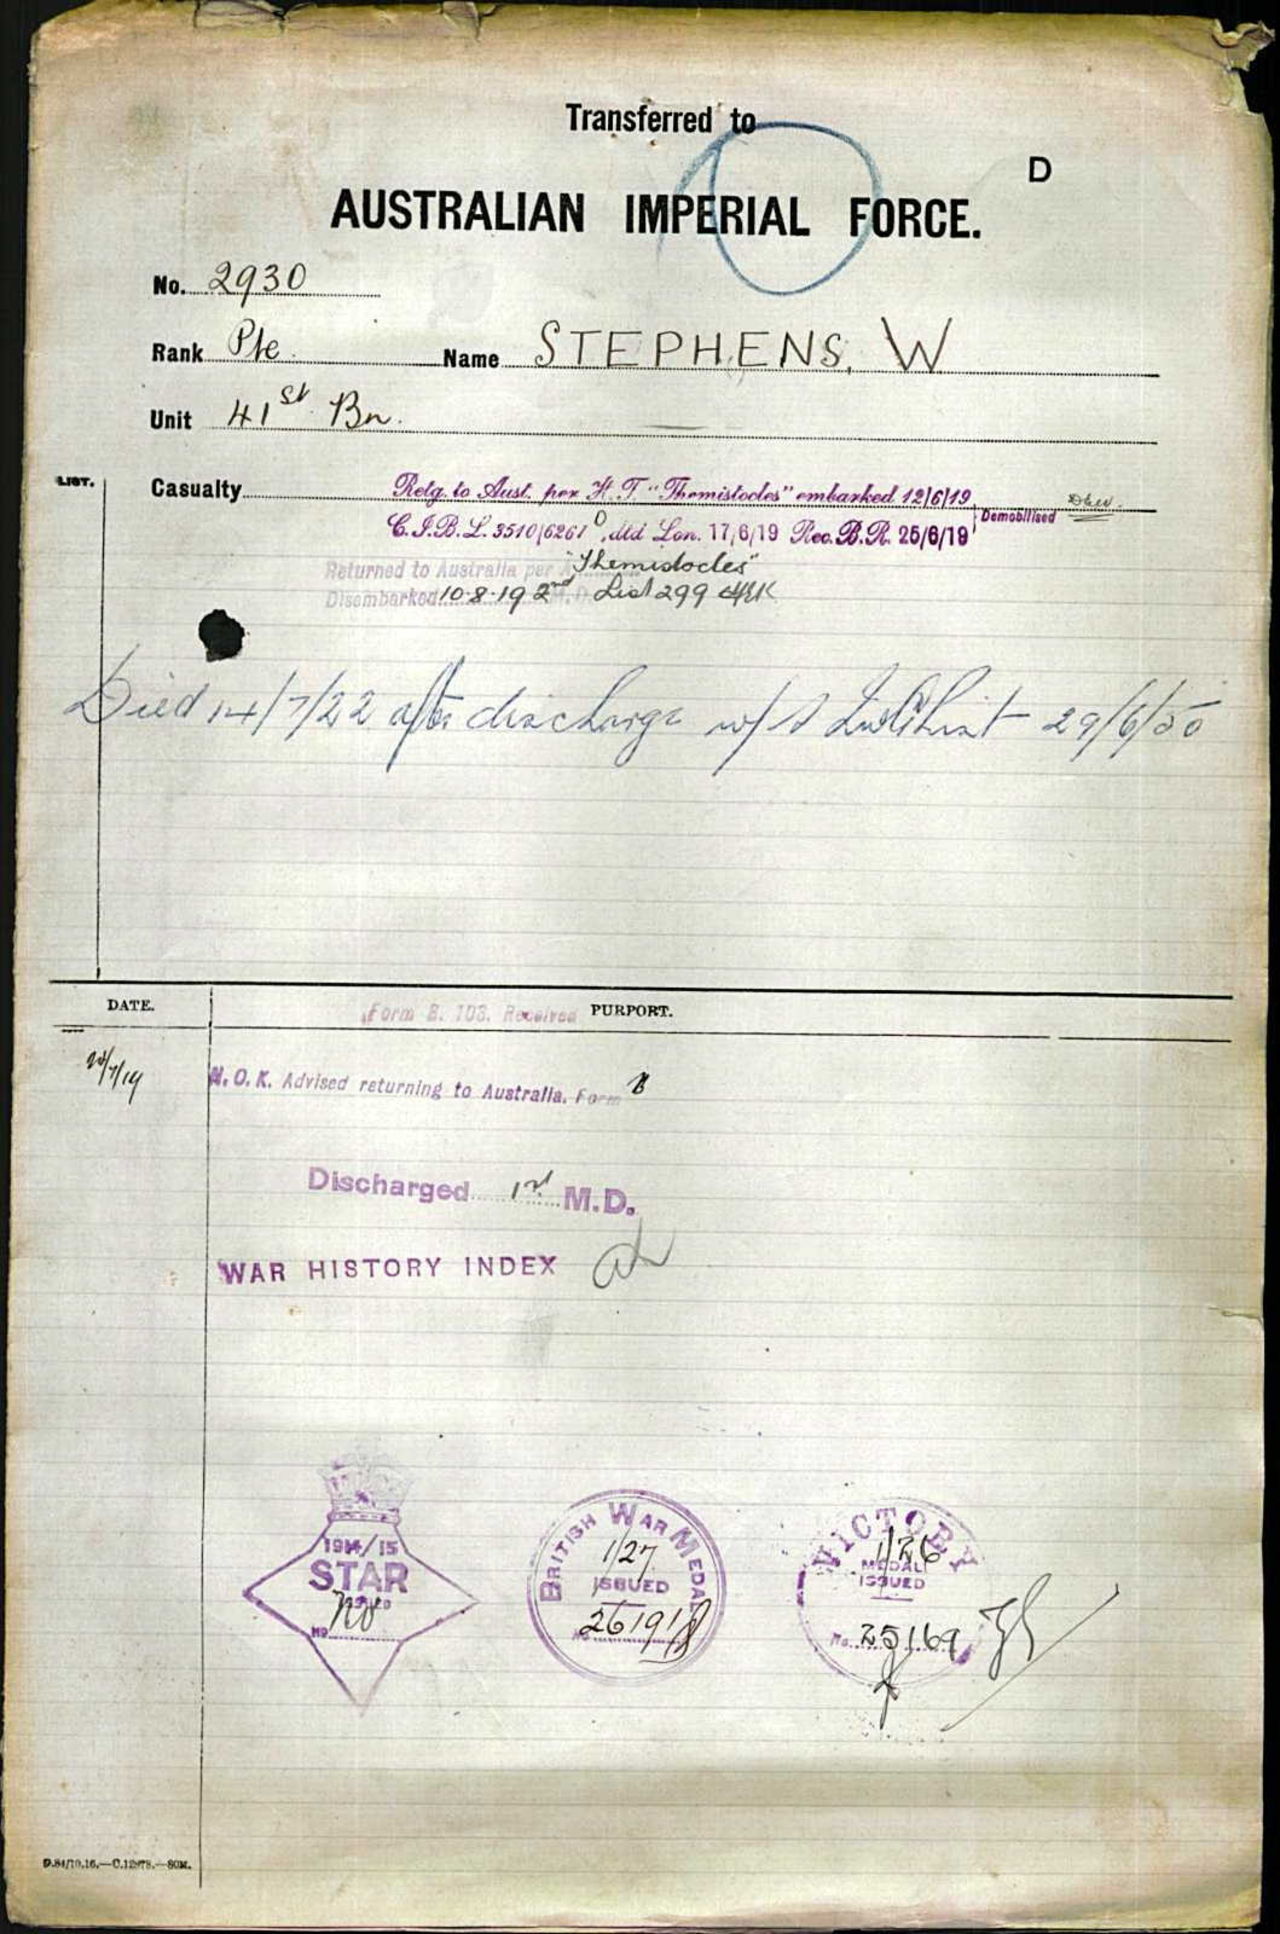 Transferred to
D
AUSTRALIAN IMPERIAL FORCE.
No. 2930
Rank Pte Name STEPHENS, W
Unit 41st Bn.
LIST.
Casualty Retg. to Aust. per H.T. "Themistocles" embarked 12/6/19
C.I.B.L. 3510/6261 O, dtd Lon. 17/6/19 Rec. B.R. 25/6/19 Demobilised
Returned to Australia per "Themistocles"
Disembarked 10-8-19 2nd M.D. List 299
Died 14/7/22 after discharge
DATE. PURPORT.
Form B. 103. Received
N.O.K. Advised returning to Australia. Form B
Discharged 1st M.D.
WAR HISTORY INDEX
1914/15
STAR
No
No.
BRITISH WAR MEDAL
1/27
ISSUED
26191
VICTORY
1/26
MEDAL
ISSUED
No. 25169
D.84/10.16.—C.12978.—80M.